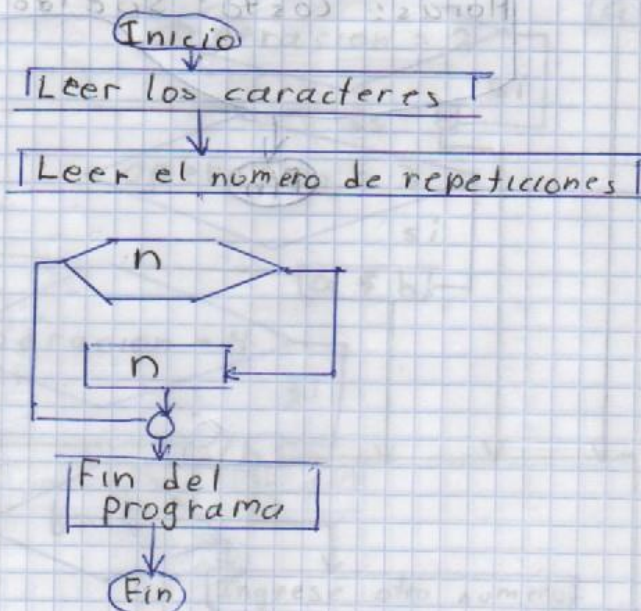 Inicio
Leer los caracteres
Leer el número de repeticiones
n
n
Fin del
programa
Fin